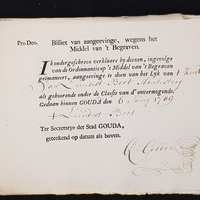 Pro Deo. Billiet van aangeevinge, wegens het
Middel van 't Begraven.
Ik ondergeschreve verklaare by deezen, ingevolge
van de Ordonnantie op 't Middel van 't Begraven
geëmaneert, aangeevinge te doen van het Lyk van
van Leendert Boot
als gehoorende onder de Classis van d'onvermogende.
Gedaan binnen GOUDA den 6 1769
Leendert Boot
Ter Secretarye der Stad GOUDA,
geteekend op datum als boven.